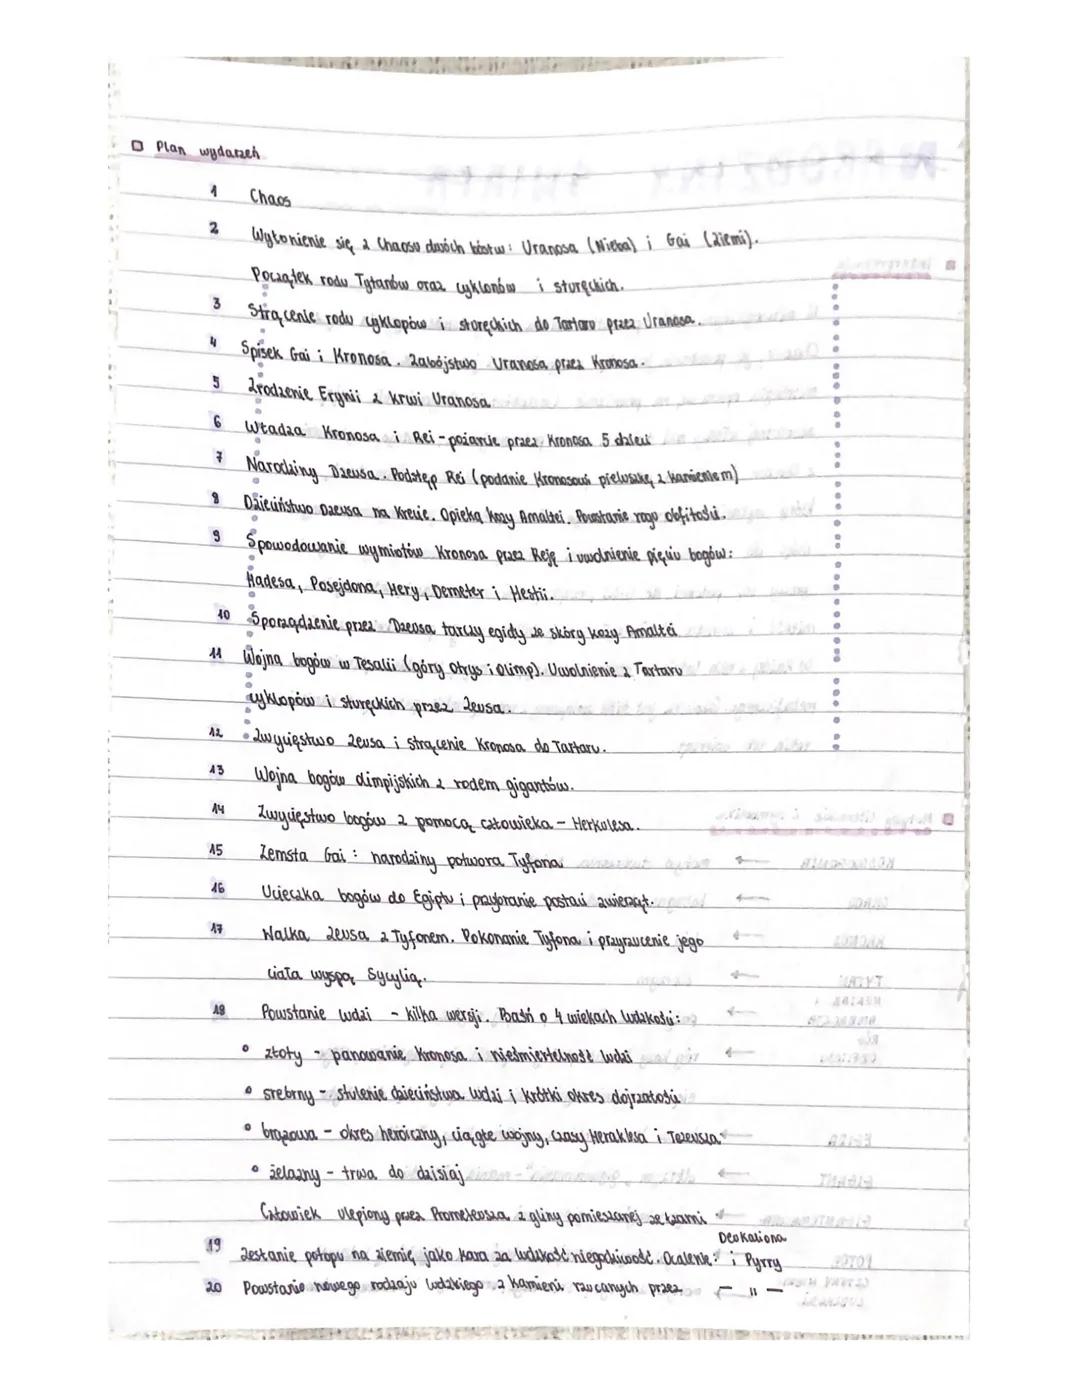 Plan wydarzeń
1 Chaos
2 Wyłonienie się z Chaosu dwóch bóstw: Uranosa (Nieba) i Gai (Ziemi).
Początek rodu Tytanów oraz cyklonów i sturękich.
3 Strącenie rodu cyklopów i sturęckich do Tartaru przez Uranosa.
4 Spisek Gai i Kronosa. Zabójstwo Uranosa przez Kronosa.
5 Zrodzenie Erynii z krwi Uranosa
6 Władza Kronosa i Rei - pożarcie przez Kronosa 5 dzieci
7 Narodziny Dzeusa. Podstęp Rei (podanie Kronosowi pieluszkę z kamieniem)
8 Dzieciństwo Dzeusa na Krecie. Opieka kozy Amaltei. Powstanie rogu obfitości.
9 Spowodowanie wymiotów Kronosa przez Reję i uwolnienie pięciu bogów:
Hadesa, Posejdona, Hery, Demeter i Hestii.
10 Sporządzenie przez Dzeusa tarczy egidy ze skóry kozy Amaltei
11 Wojna bogów w Tesalii (góry Otrys i Olimp). Uwolnienie z Tartaru
cyklopów i sturęckich przez Zeusa.
12 Zwycięstwo Zeusa i strącenie Kronosa do Tartaru.
13 Wojna bogów olimpijskich z rodem gigantów.
14 Zwycięstwo bogów z pomocą człowieka - Herkulesa.
15 Zemsta Gai : narodziny potwora Tyfona
16 Ucieczka bogów do Egiptu i przybranie postaci zwierząt.
17 Walka Zeusa z Tyfonem. Pokonanie Tyfona i przyrzucenie jego
ciała wyspą Sycylią.
18 Powstanie ludzi - kilka wersji. Baśń o 4 wiekach ludzkości:
złoty - panowanie Kronosa i nieśmiertelność ludzi
srebrny - stulenie dzieciństwa ludzi i krótki okres dojrzałości
brązowa - okres heroiczny, ciągłe wojny, czasy Heraklesa i Tezeusza
żelazny - trwa do dzisiaj
Człowiek ulepiony przez Prometeusza z gliny pomieszanej ze łzami
Deukaliona
19 Zesłanie potopu na ziemię jako kara za ludzkość niegodziwość. Ocalenie: i Pyrry
20 Powstanie nowego rodzaju ludzkiego z kamieni rzucanych przez — " —